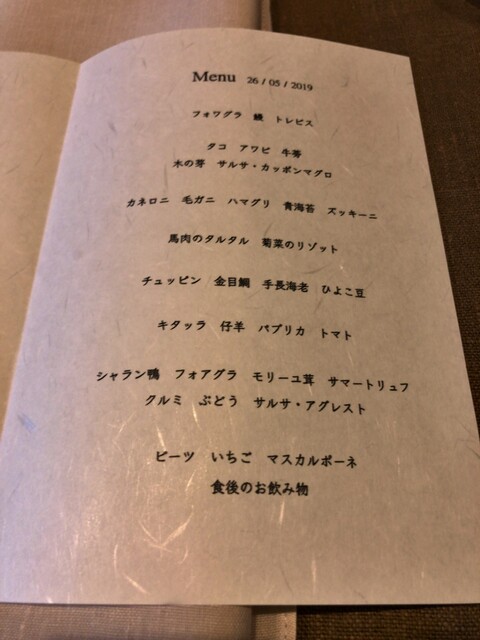 Menu 26 / 05 / 2019
フォワグラ 鰻 トレビス
タコ アワビ 牛蒡
木の芽 サルサ・カッポンマグロ
カネロニ 毛ガニ ハマグリ 青海苔 ズッキーニ
馬肉のタルタル 菊菜のリゾット
チュッピン 金目鯛 手長海老 ひよこ豆
キタッラ 仔羊 パプリカ トマト
シャラン鴨 フォアグラ モリーユ茸 サマートリュフ
クルミ ぶどう サルサ・アグレスト
ビーツ いちご マスカルポーネ
食後のお飲み物